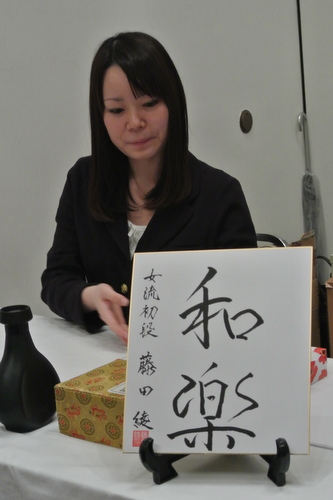 和楽
女流初段 藤田綾